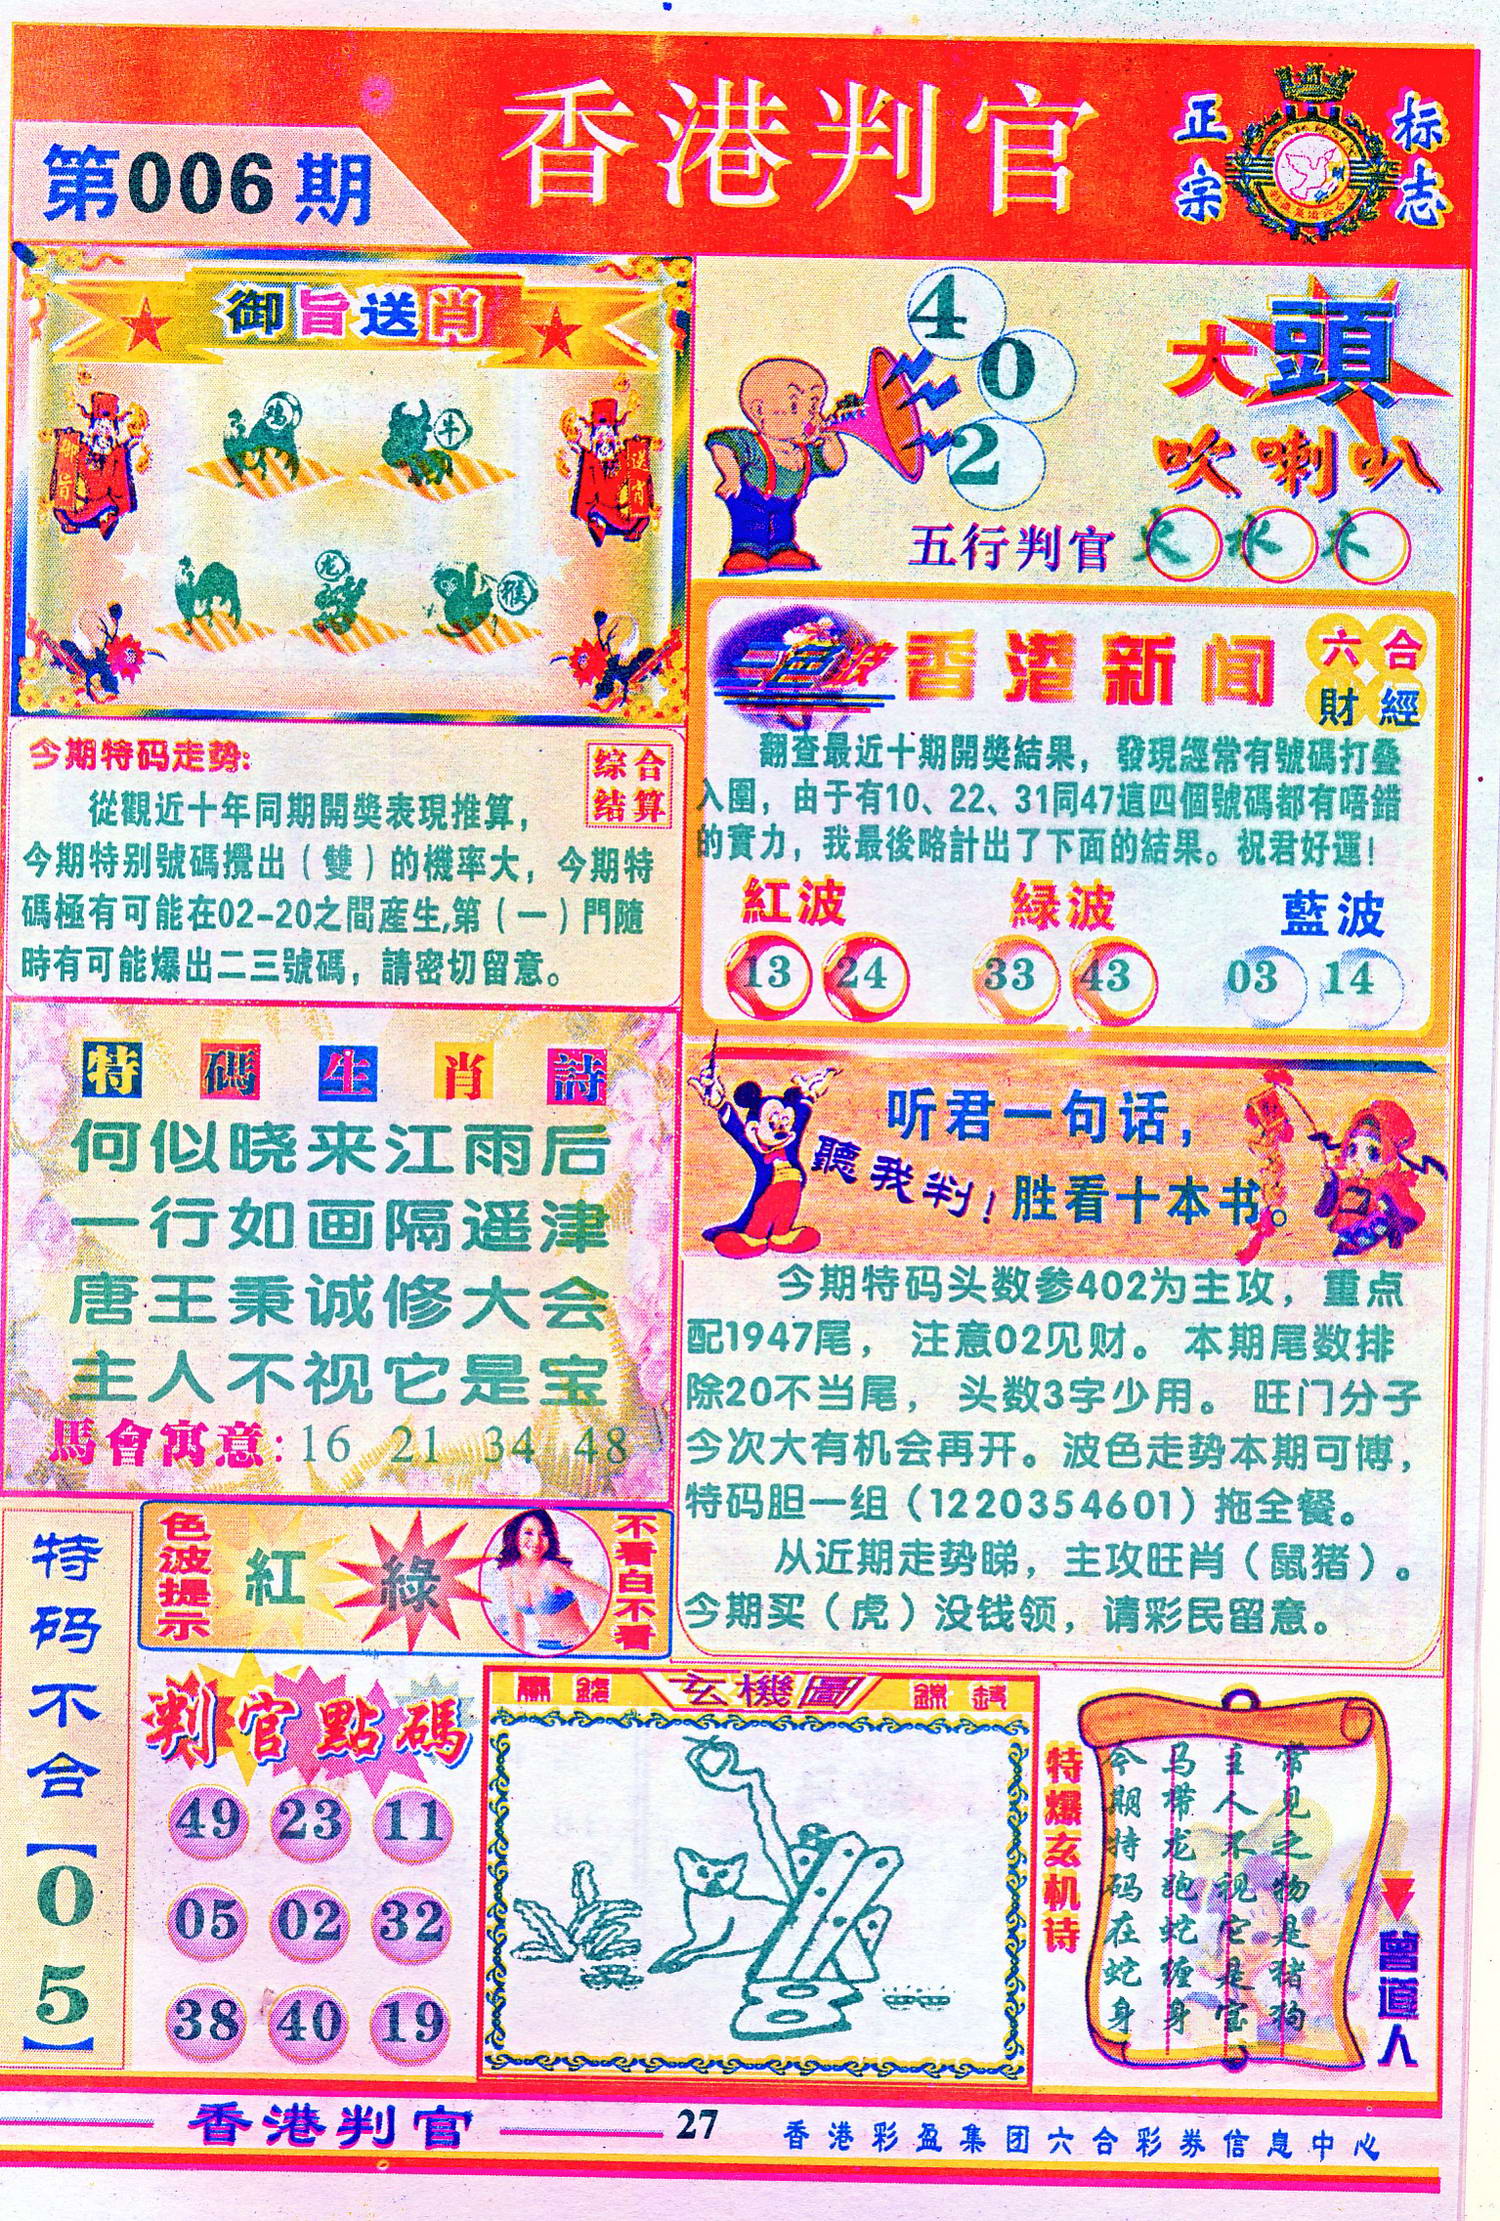 香港判官
正宗
标志
第006期
御旨送肖
御旨
送肖
鸡
牛
龙
猴
4
0
2
大頭
吹喇叭
五行判官 火 水 木
今期特码走势:
综合
结算
從觀近十年同期開獎表現推算，
今期特别號碼攪出（雙）的機率大，今期特
碼極有可能在02-20之間産生,第（一）門隨
時有可能爆出二三號碼，請密切留意。
三色波
香港新闻
六合
財經
翻查最近十期開獎結果，發現經常有號碼打叠
入圍，由于有10、22、31同47這四個號碼都有唔錯
的實力，我最後略計出了下面的結果。祝君好運！
紅波 緑波 藍波
13 24 33 43 03 14
特碼生肖詩
何似晓来江雨后
一行如画隔遥津
唐王秉诚修大会
主人不视它是宝
馬會寓意: 16 21 34 48
聽我判！
听君一句话，
胜看十本书。
今期特码头数参402为主攻，重点
配1947尾，注意02见财。本期尾数排
除20不当尾，头数3字少用。旺门分子
今次大有机会再开。波色走势本期可博，
特码胆一组（1220354601）拖全餐。
从近期走势睇，主攻旺肖（鼠猪）。
今期买（虎）没钱领，请彩民留意。
特码不合【05】
色波提示
紅
綠
不看白不看
判官點碼
49 23 11
05 02 32
38 40 19
玄機圖
特爆玄机诗
常见之物是猪狗
主人不视它是宝
马带龙跑蛇缠身
今期特码在蛇身
曾道人
香港判官
27
香港彩盈集团六合彩券信息中心